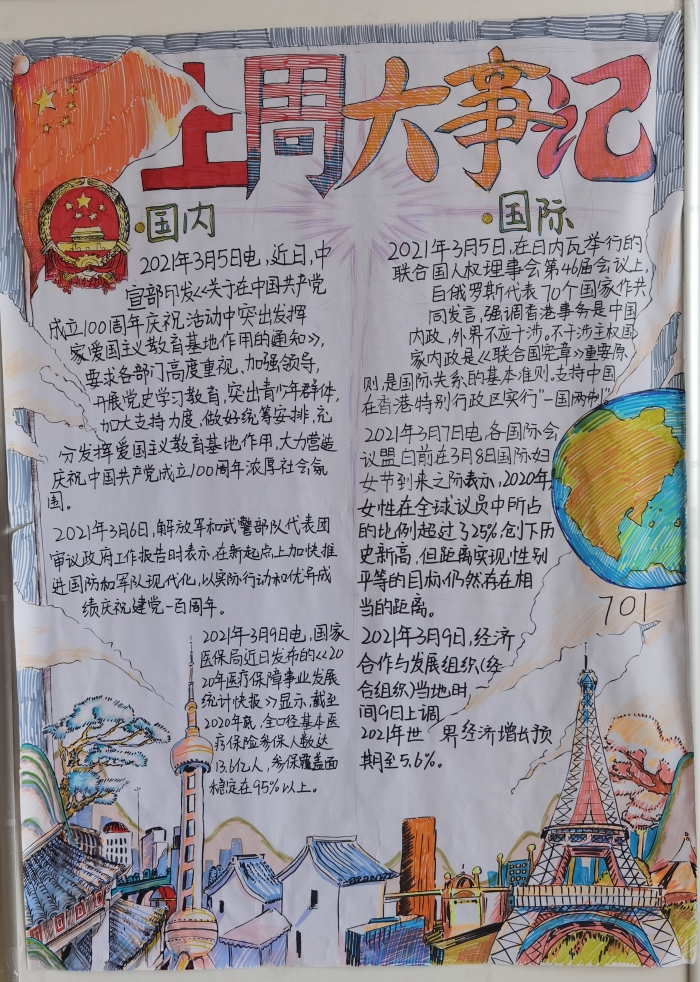 上周大事记
·国内
2021年3月5日电,近日,中
宣部印发《关于在中国共产党
成立100周年庆祝活动中突出发挥
家爱国主义教育基地作用的通知》,
要求各部门高度重视,加强领导,
开展党史学习教育,突出青少年群体,
加大支持力度,做好统筹安排,充
分发挥爱国主义教育基地作用,大力营造
庆祝中国共产党成立100周年浓厚社会氛
围。
2021年3月6日,解放军和武警部队代表团
审议政府工作报告时表示,在新起点上加快推
进国防和军队现代化,以实际行动和优异成
绩庆祝建党一百周年。
2021年3月9日电,国家
医保局近日发布的《20
20年医疗保障事业发展
统计快报》显示,截至
2020年底,全口径基本医
疗保险参保人数达
13.6亿人,参保覆盖面
稳定在95%以上。
·国际
2021年3月5日,在日内瓦举行的
联合国人权理事会第46届会议上,
白俄罗斯代表70个国家作共
同发言,强调香港事务是中国
内政,外界不应干涉。不干涉主权国
家内政是《联合国宪章》重要原
则,是国际关系的基本准则。支持中国
在香港特别行政区实行"一国两制"
2021年3月7日电,各国际会
议盟日前在3月8日国际妇
女节到来之际表示,2020年
女性在全球议员中所占
的比例超过了25%,创下历
史新高,但距离实现性别
平等的目标仍然存在相
当的距离。
701
2021年3月9日,经济
合作与发展组织(经
合组织)当地时
间9日上调
2021年世界经济增出预
期至5.6%。